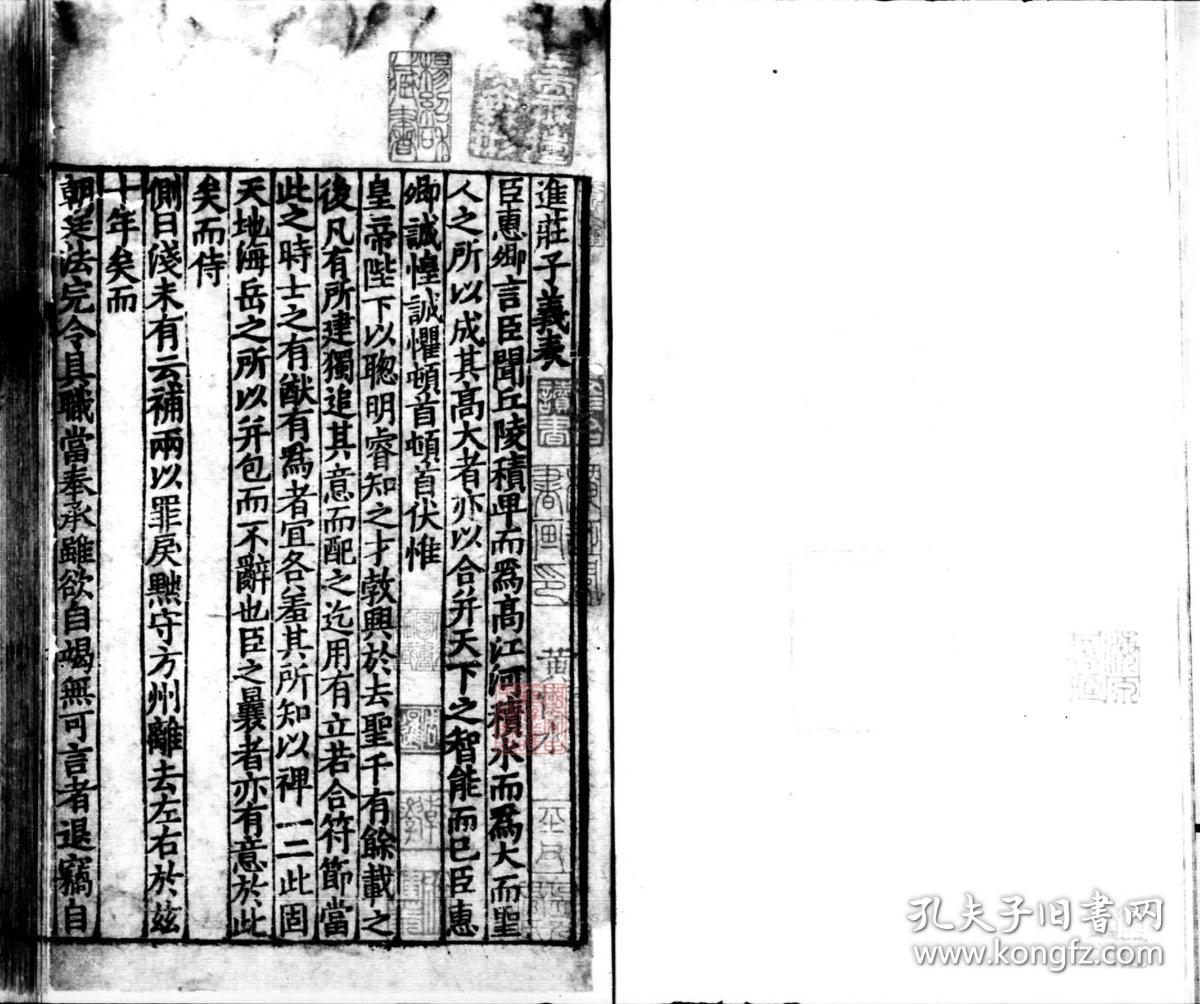 進莊子義表
臣惠卿言臣聞丘陵積卑而爲高江河積水而爲大而聖
人之所以成其高大者亦以合并天下之智能而已臣惠
卿誠惶誠懼頓首頓首伏惟
皇帝陛下以聰明睿知之才敦興於去聖千有餘載之
後凡有所建獨追其意而配之迄用有立若合符節當
此之時士之有猷有爲者宜各羞其所知以裨一二此固
天地海岳之所以并包而不辭也臣之曩者亦有意於此
矣而侍
側日淺未有云補兩以罪戾黜守方州離去左右於兹
十年矣而
朝廷法完令具職當奉承雖欲自竭無可言者退竊自
楊紹和
藏書
讀書
書画印
孔夫子旧书网
www.kongfz.com